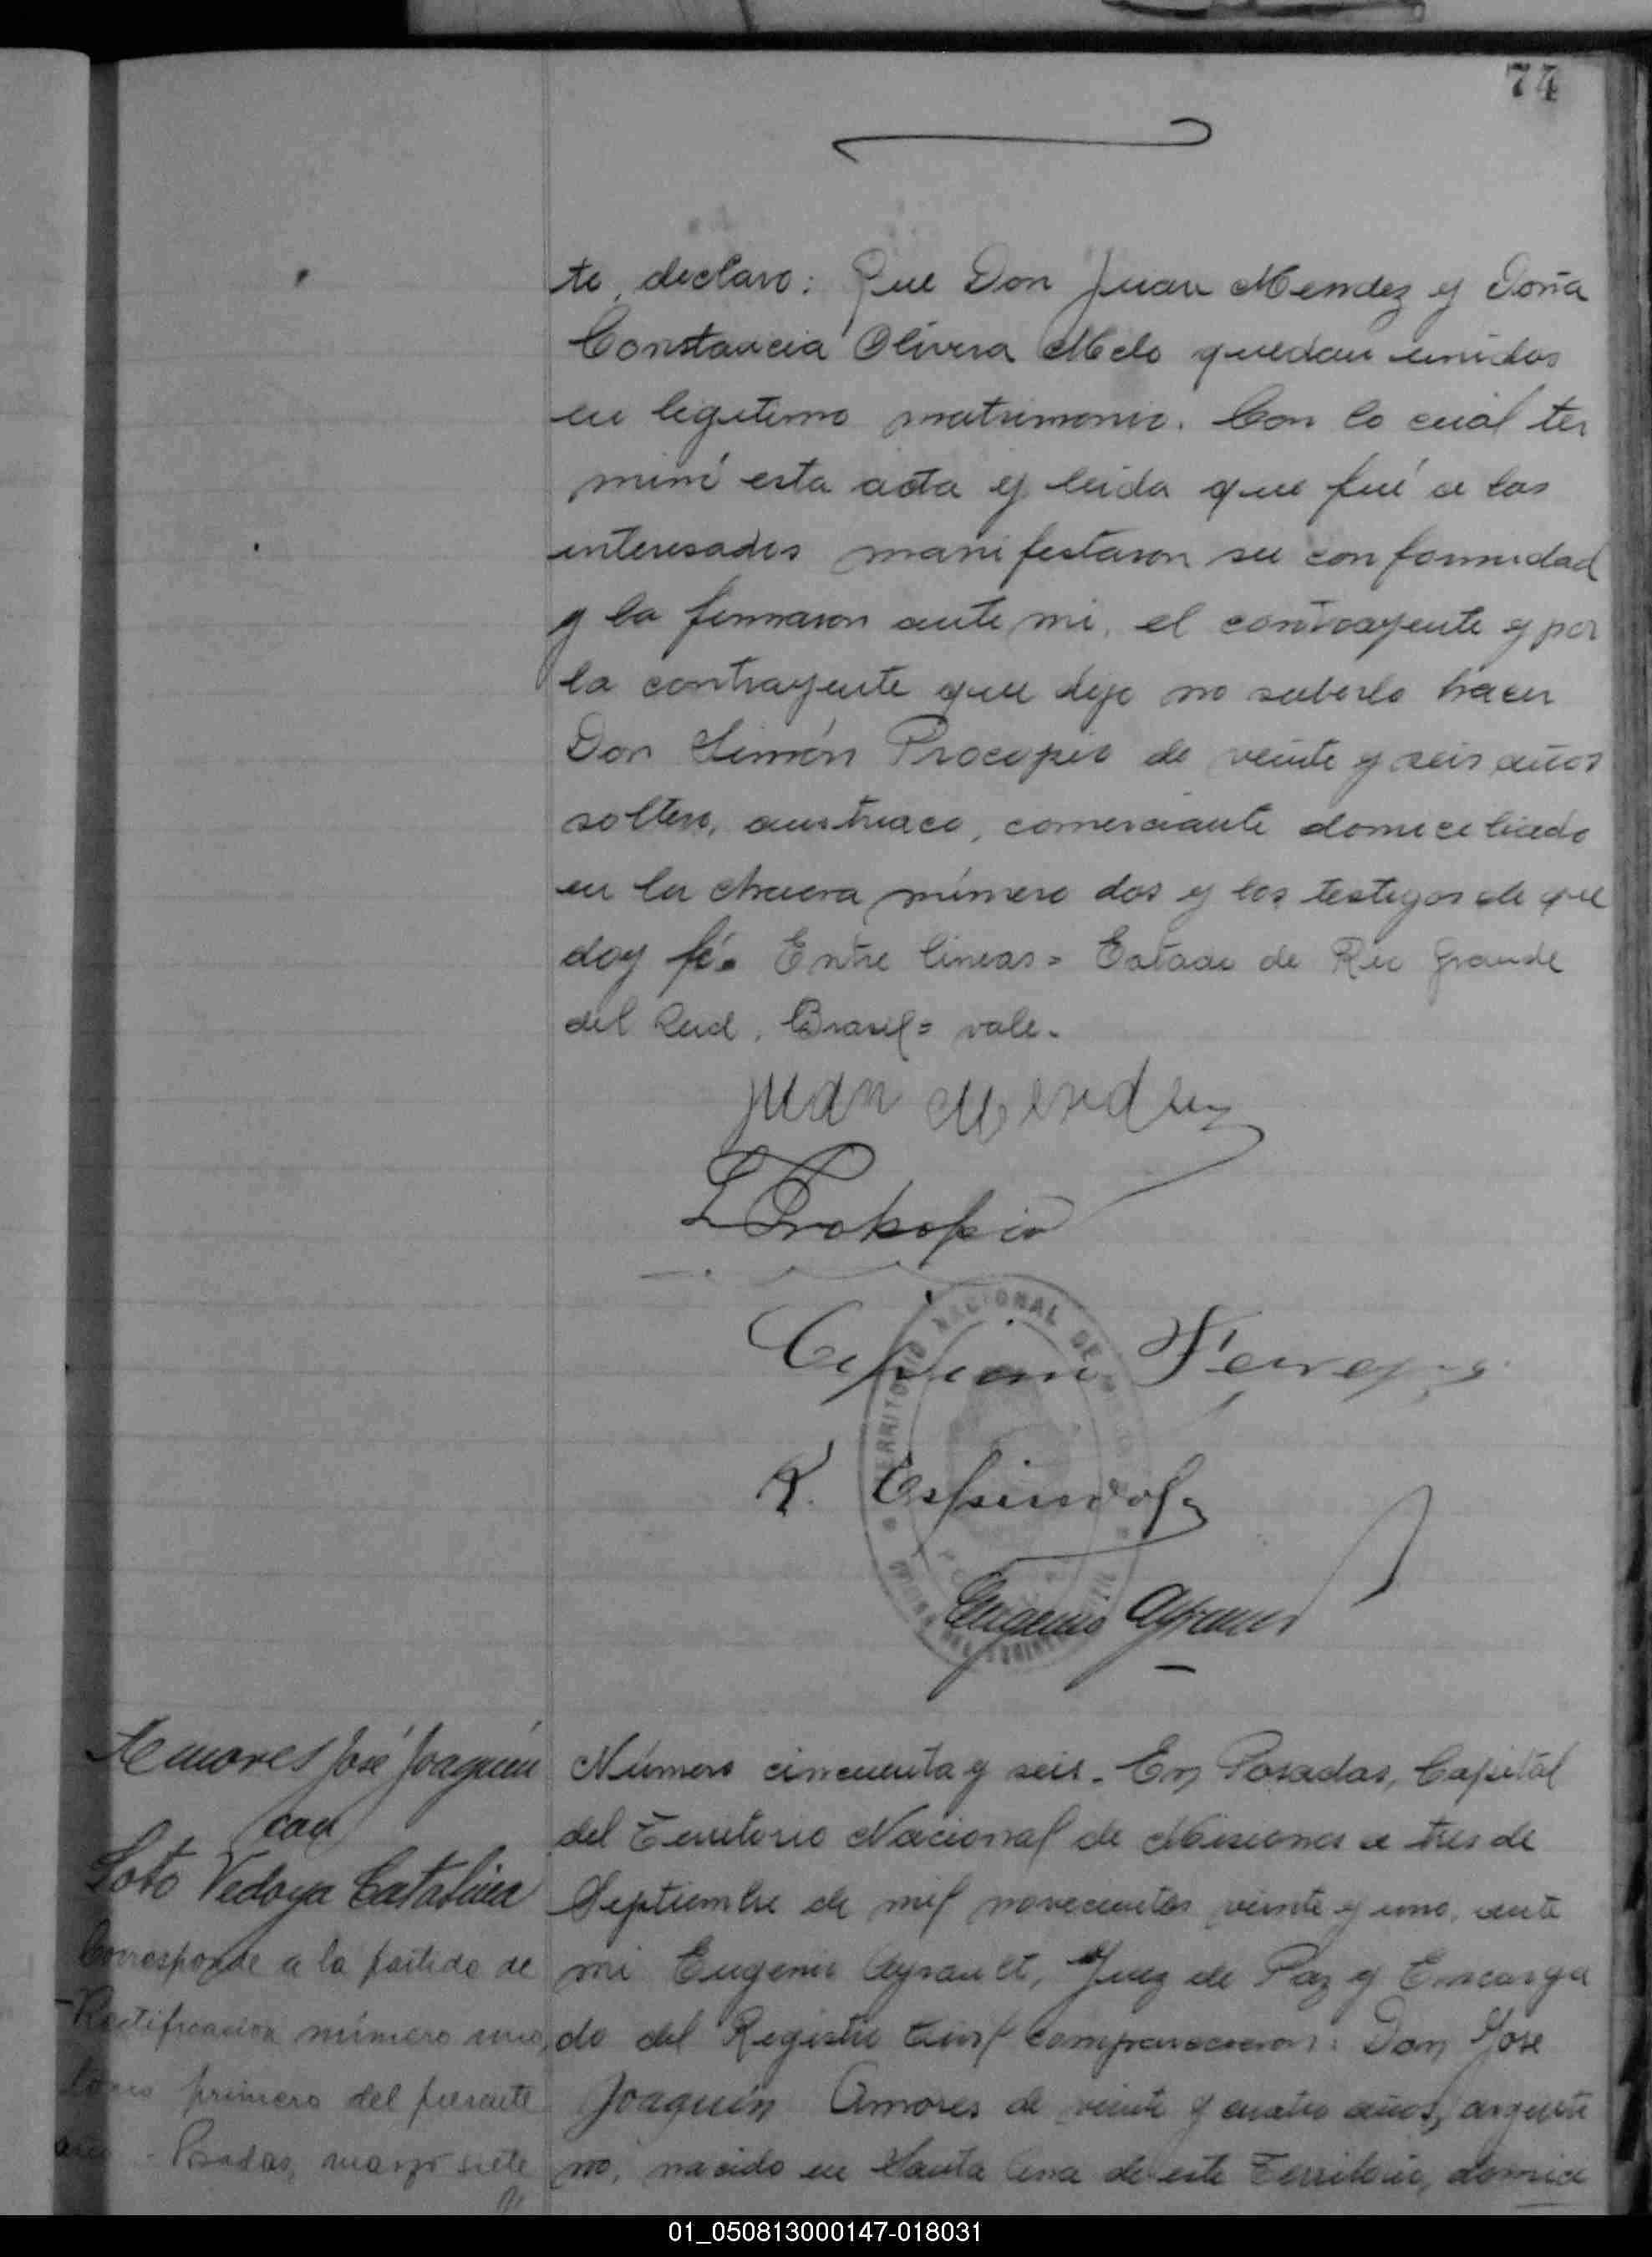 74
te, declaro: Que Don Juan Mendez y Doña
Constancia Olivera Melo quedan unidos
en legitimo matrimonio. Con lo cual ter
miné esta acta y leida que fué a los
interesados manifestaron su conformidad
y la firmaron ante mi, el contrayente y por
la contrayente que dijo no saberlo hacer
Don Simón Procopio de veinte y seis años
soltero, austriaco, comerciante domiciliado
en la chacra número dos y los testigos de que
doy fé. Entre lineas = Estado de Rio Grande
del Sud, Brasil = vale.
Juan Mendez
S Prokopio
TERRITORIO NACIONAL DE
R. Espindola
Eugenio Ayrault
Amores José Joaquin
con
Soto Vedoya Catalina
Corresponde a la partida de
Rectificacion número uno,
tomo primero del presente
año - Posadas, marzo siete
Número cincuenta y seis. En Posadas, Capital
del Territorio Nacional de Misiones a tres de
Septiembre de mil novecientos veinte y uno, ante
mi Eugenio Ayrault, Juez de Paz y Encarga
do del Registro Civil comparecieron: Don José
Joaquín Amores de veinte y cuatro años, argenti
no, nacido en Santa Ana de este Territorio, domici
01_050813000147-018031